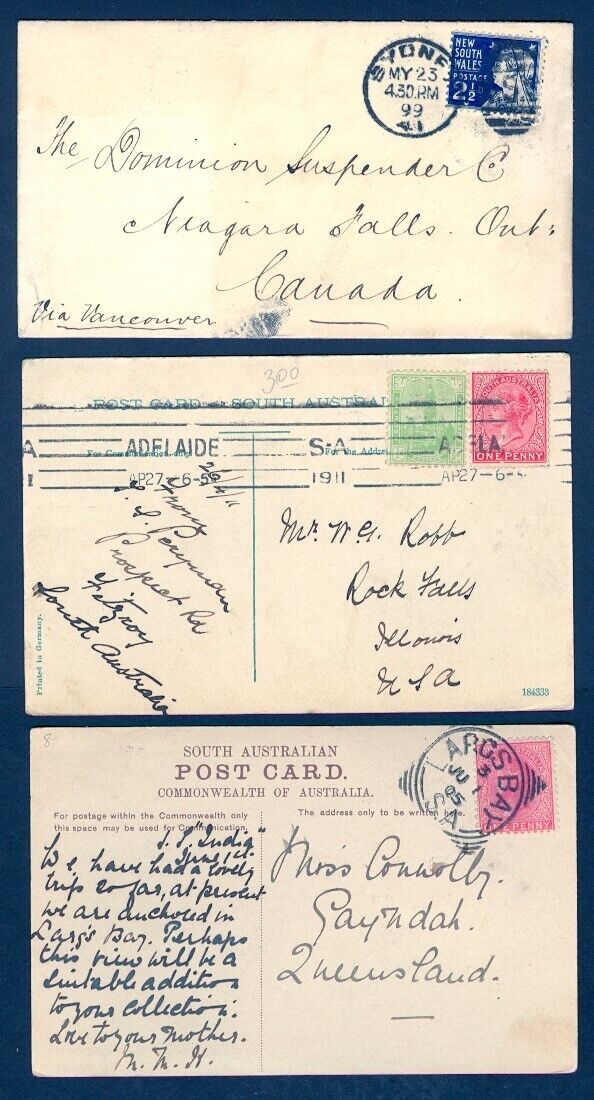 SYDNEY
MY 23
4.30.PM
99
41
NEW
SOUTH
WALES
POSTAGE
2½D
The Dominion Suspender Co
Niagara Falls. Ont:
Canada.
Via Vancouver
300
POST CARD - SOUTH AUSTRALIA
ADELAIDE S-A ADELA
AP27-6-5P 1911 AP27-6-5
For Communication only
For the Address
SOUTH AUSTRALIA
ONE PENNY
26/4/11
From
Penyman
Prospect Rd
Fitzroy
South Australia
Mr. W. G. Robb
Rock Falls
Illinois
U S A
Printed in Germany.
184333
8-
SOUTH AUSTRALIAN
POST CARD.
COMMONWEALTH OF AUSTRALIA.
For postage within the Commonwealth only
this space may be used for Communication.
The address only to be written here.
LARGS BAY
JU 1
05
S.A
PENNY
S.S "India"
June 1st.
We have had a lovely
trip so far, at present
we are anchored in
Larg's Bay. Perhaps
this view will be a
suitable addition
to your collection.
Love to your Mother.
M. M. H.
Miss Connolly.
Gayndah.
Queensland.